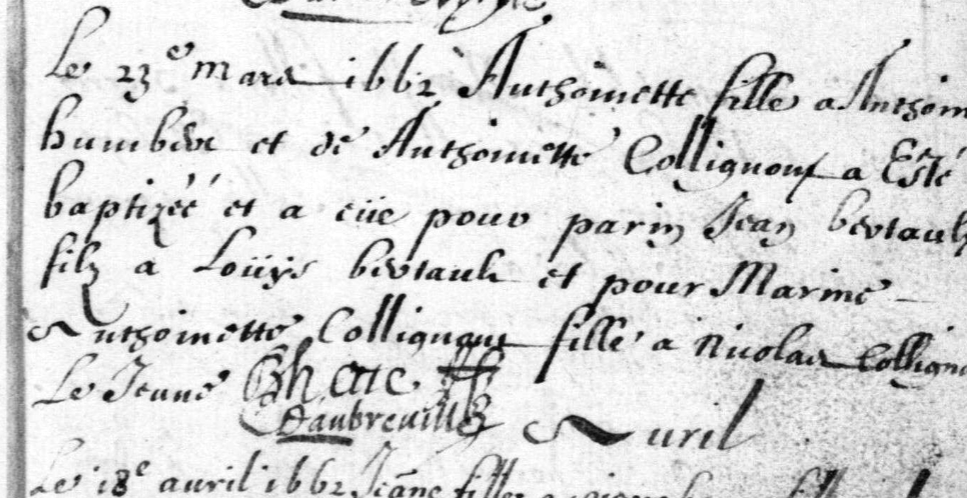 Le 23e mars 1662 Anthoinette fille a Anthoin
humbert et de Anthoinette Collignon a Esté
baptizéé et a eüe pour parin Jean bertault
filz a Loüys bertault et pour Marine
Anthoinette Collignont fille a Nicolas Collign
Le Jeune
Daubreuille
Avril
Le 18e avril 1662 Jeanne fille a